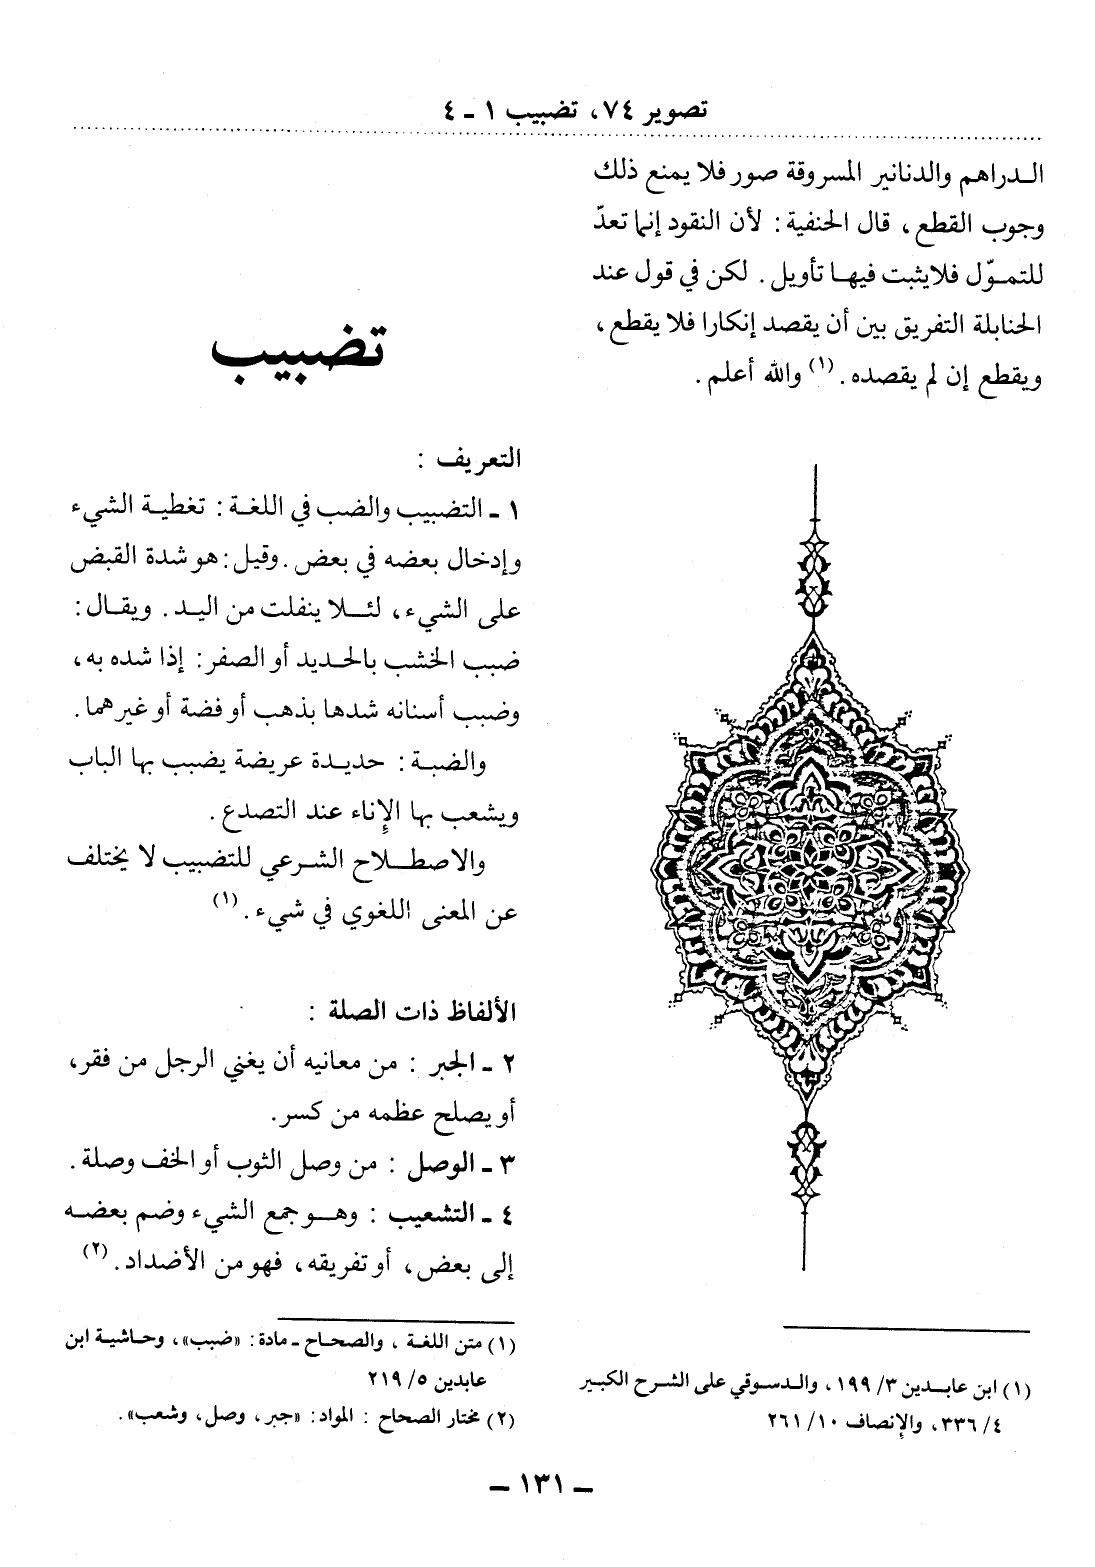 تصوير ٧٤، تضبيب ١ ـ ٤
الـدراهم والدنانير المسروقة صور فلا يمنع ذلك
وجوب القطع ، قال الحنفية : لأن النقود إنما تعدّ
للتمـوّل فلايثبت فيهـا تأويل . لكن في قول عند
الحنابلة التفريق بين أن يقصد إنكارا فلا يقطع ،
ويقطع إن لم يقصده . (١) والله أعلم .
(١) ابن عابـدين ٣/ ١٩٩ ، والـدسـوقي على الشـرح الكبـير
٤/ ٣٣٦، والإنصاف ١٠/ ٢٦١
تضبيب
التعريف :
١ ـ التضبيب والضب في اللغـة : تغطيـة الشيء
وإدخال بعضه في بعض . وقيل : هو شدة القبض
على الشيء ، لئـلا ينفلت من اليـد . ويقـال :
ضبب الخشب بالحـديد أو الصفر : إذا شده به ،
وضبب أسنانه شدها بذهب أو فضة أو غيرهما .
والضبـة : حديـدة عريضة يضبب بها الباب
ويشعب بها الإناء عند التصدع .
والاصطـلاح الشـرعي للتضبيب لا يختلف
عن المعنى اللغوي في شيء . (١)
الألفاظ ذات الصلة :
٢ ـ الجبر : من معانيه أن يغني الرجل من فقر ،
أو يصلح عظمه من كسر .
٣ ـ الوصل : من وصل الثوب أو الخف وصلة .
٤ ـ التشعيب : وهـو جمع الشيء وضم بعضـه
إلى بعض ، أو تفريقه ، فهو من الأضداد . (٢)
(١) متن اللغـة ، والصحـاح ـ مادة : «ضبب» ، وحـاشيـة ابن
عابدين ٥/ ٢١٩
(٢) مختار الصحاح : المواد : «جبر ، وصل ، وشعب» .
ـ ١٣١ ـ